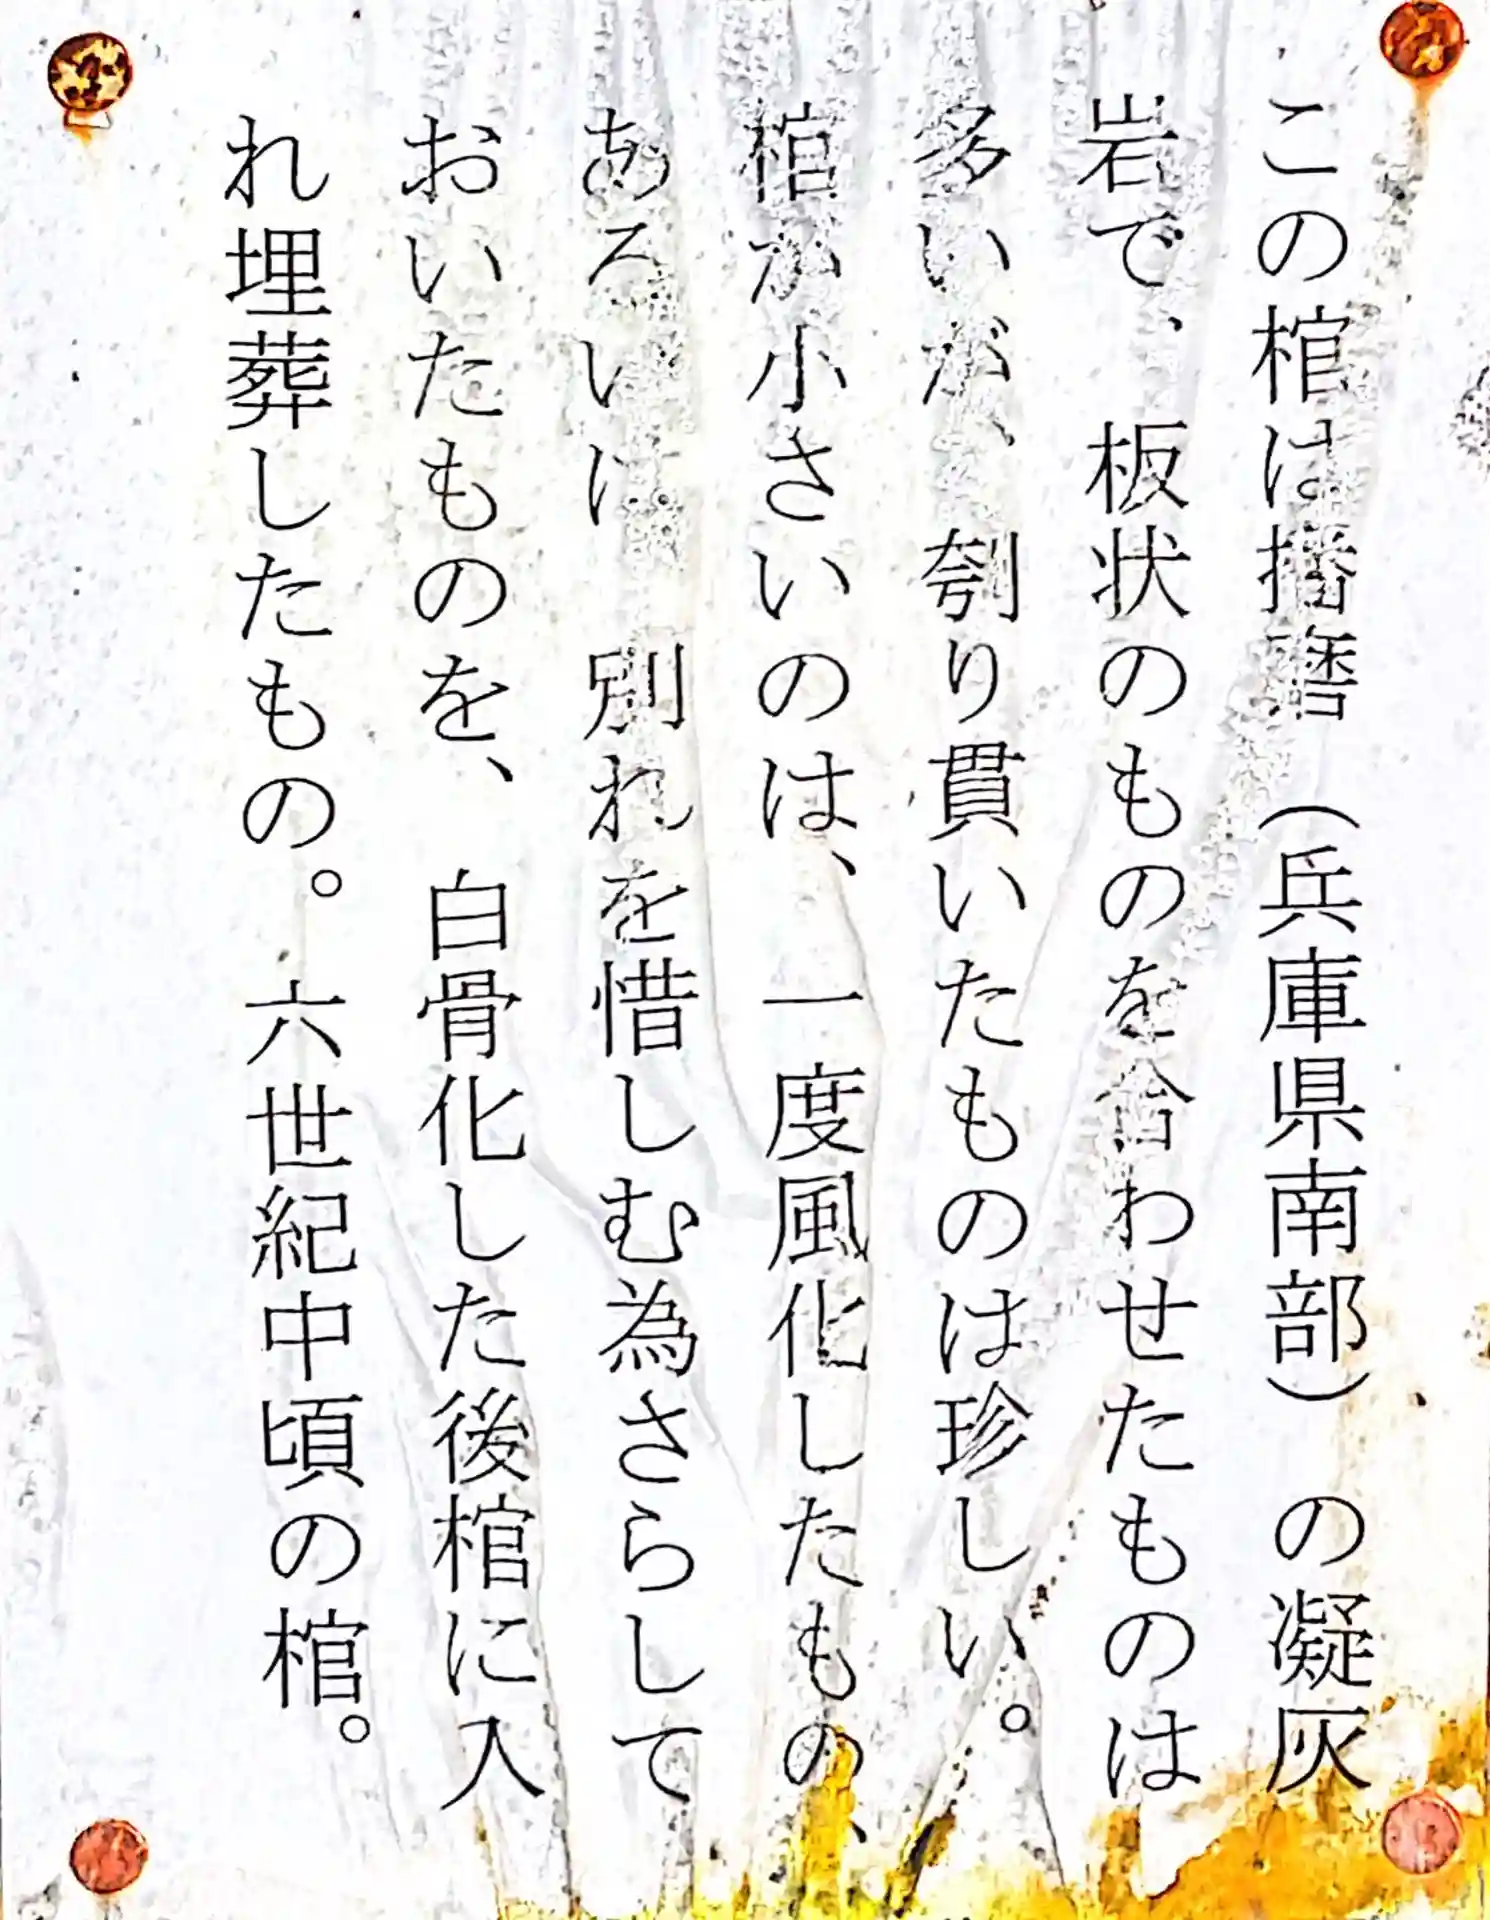 この棺は播磨（兵庫県南部）の凝灰
岩で、板状のものを合わせたものは
多いが、刳り貫いたものは珍しい。
棺が小さいのは、一度風化したもの、
あるいは別れを惜しむ為さらして
おいたものを、白骨化した後棺に入
れ埋葬したもの。六世紀中頃の棺。